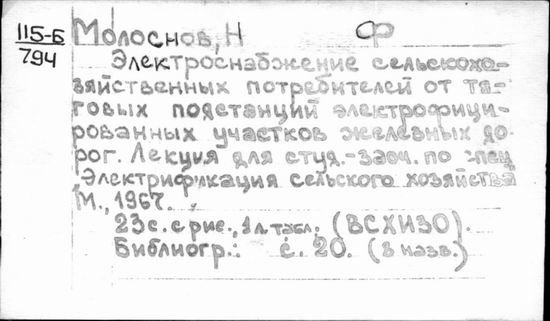 115-Б Молоснов, Н Ф
794
Электроснабжение сельскохо-
зяйственных потребителей от тя-
говых подстанций электрофици-
рованных участков железных до-
рог. Лекция для студ.-заоч. по спец.
„Электрификация сельского хозяйства"
М., 1967.
23 с. с рис., 1 л. табл. (ВСХИЗО).
Библиогр.: с. 20. (8 назв.)